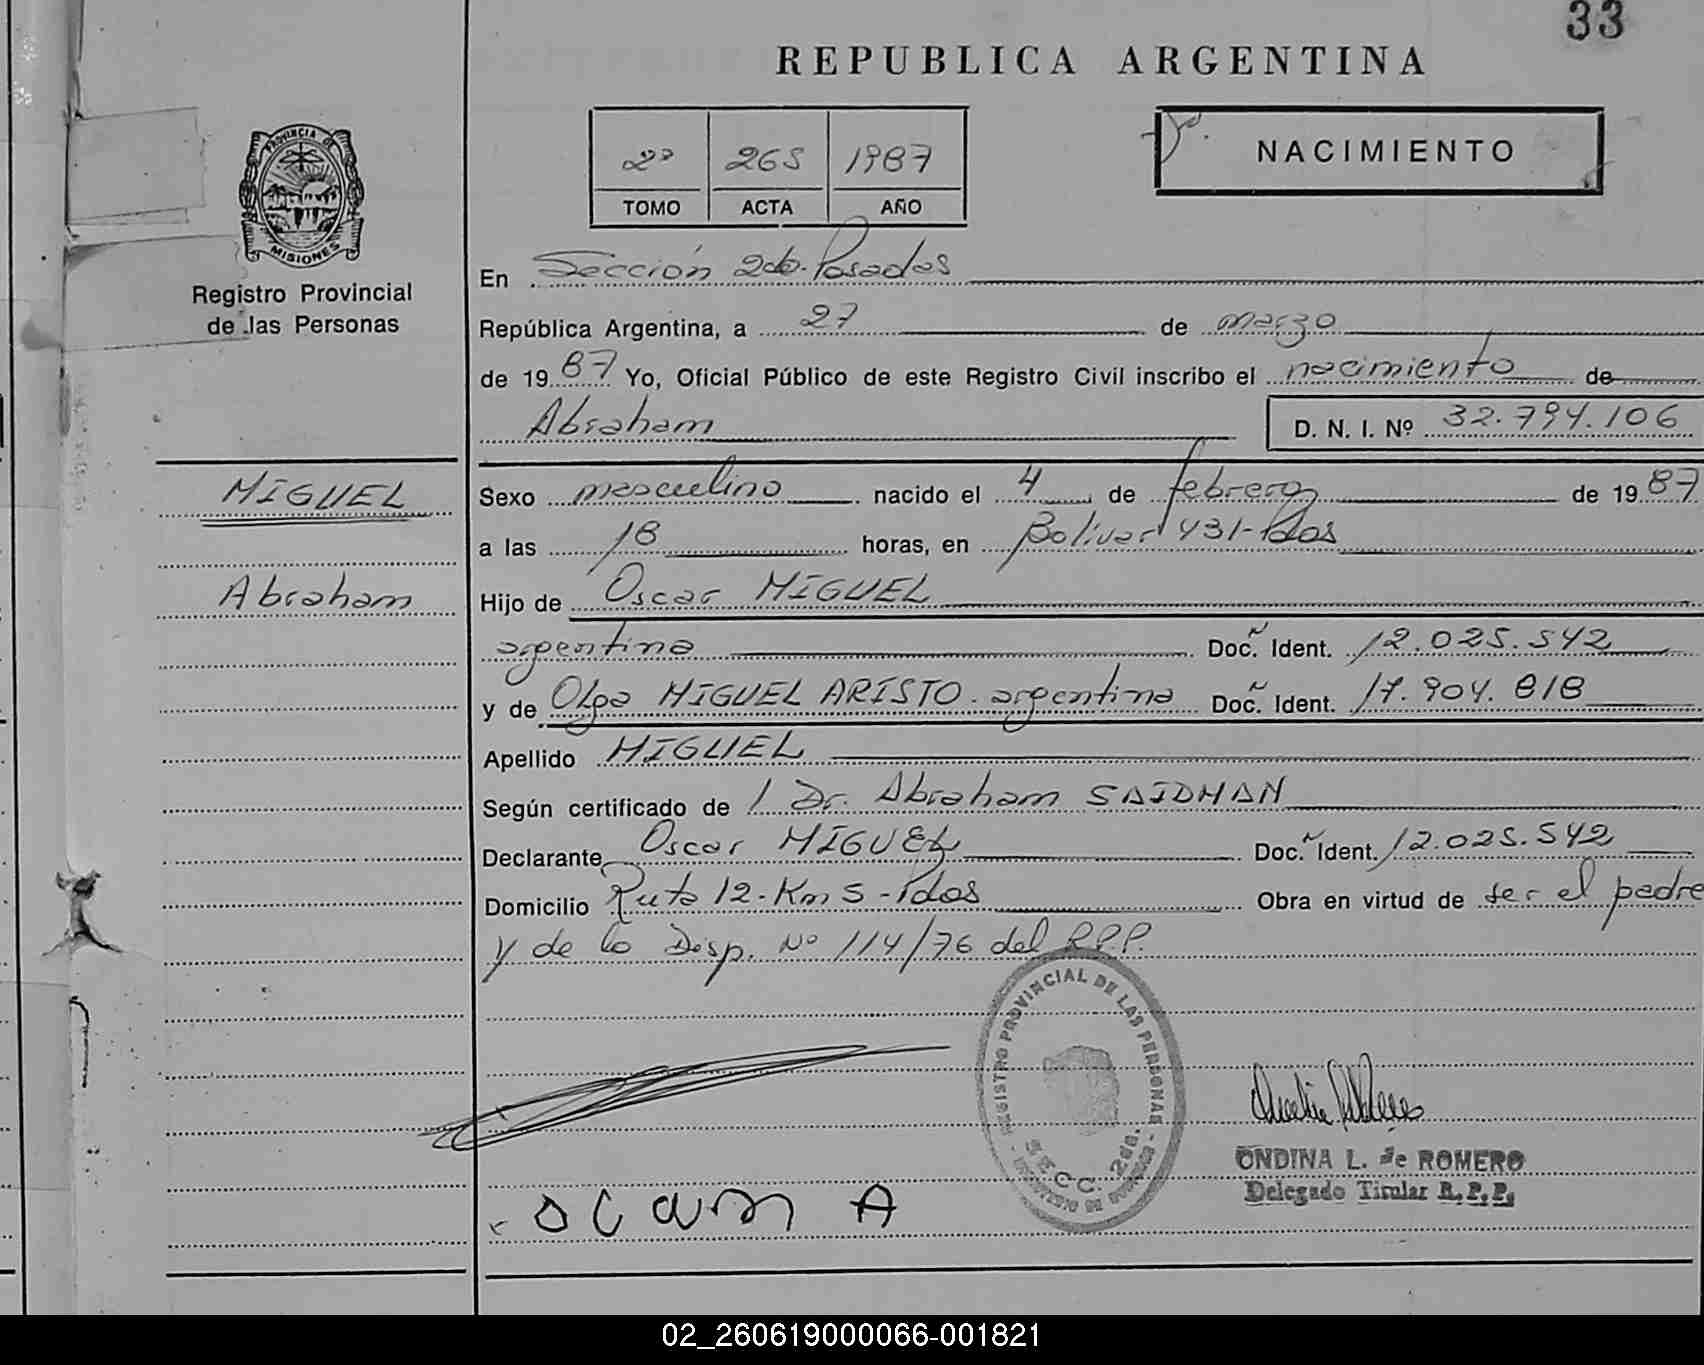 33
REPUBLICA ARGENTINA
2º 265 1987
TOMO ACTA AÑO
NACIMIENTO
PROVINCIA DE
MISIONES
Registro Provincial
de las Personas
En Sección 2da. Posadas
República Argentina, a 27 de marzo
de 1987 Yo, Oficial Público de este Registro Civil inscribo el nacimiento de
Abraham D. N. I. Nº 32.794.106
MIGUEL
Abraham
Sexo masculino nacido el 4 de febrero de 1987
a las 18 horas, en Bolívar 431-Pdas
Hijo de Oscar MIGUEL
argentino Doc. Ident. 12.025.542
y de Olga MIGUEL ARISTO. argentina Doc. Ident. 17.904.818
Apellido MIGUEL
Según certificado de l Dr. Abraham SAIDMAN
Declarante Oscar MIGUEL Doc. Ident. 12.025.542
Domicilio Ruta 12-Km 5-Pdas Obra en virtud de ser el padre
y de la Disp. Nº 114/76 del R.P.P.
REGISTRO PROVINCIAL DE LAS PERSONAS
SECC. 2da.
ONDINA L. de ROMERO
Delegado Titular R.P.P.
02_260619000066-001821